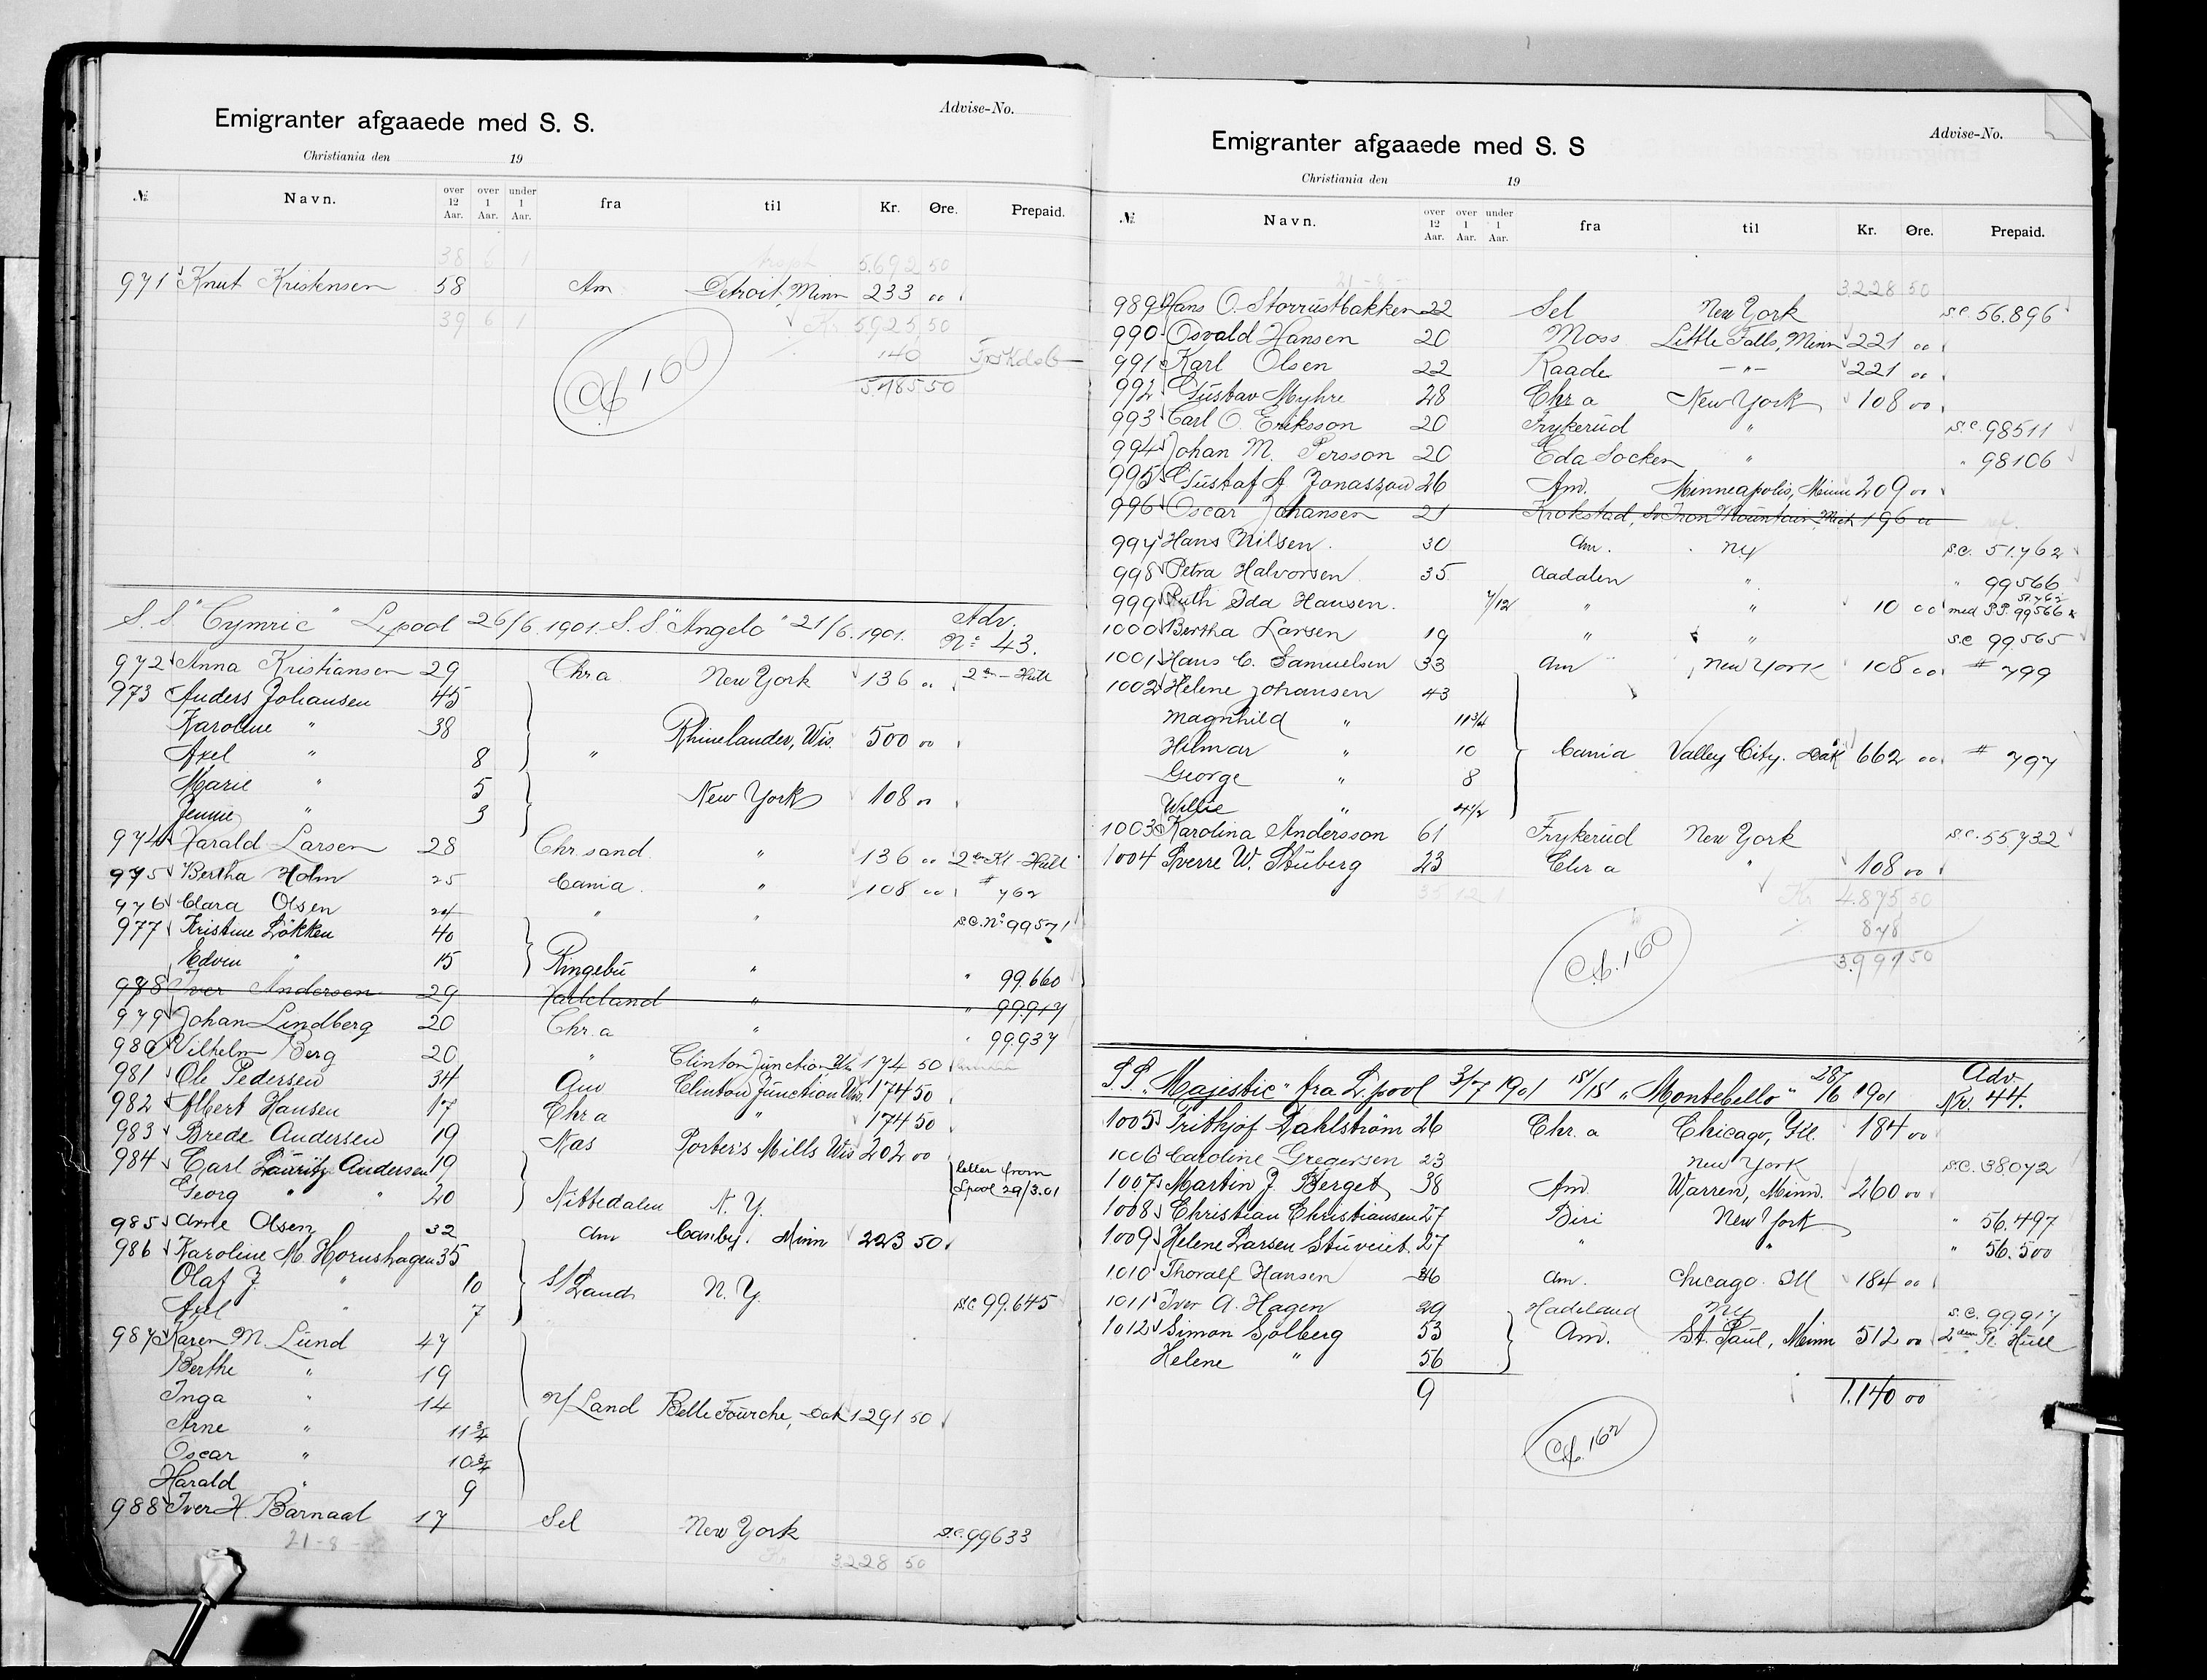 Emigranter afgaaede med S. S.
Advise-No.
Christiania den 19
№ Navn. over 12 Aar. over 1 Aar. under 1 Aar. fra til Kr. Øre. Prepaid.
38 6 1 5.692 50
971 Knut Kristensen 58 Am Detroit, Minn 233 00
39 6 1 Kr 5.925 50
140
5.785.50
Cf 160
S.S. "Cymric" Lpool 26/6.1901. S.S. "Angelo" 21/6.1901. Adv. No: 43.
972 Anna Kristiansen 29 Chr.a New York 136 00
973 Anders Johansen 45
Karoline " 38 Rhinelander, Wis. 500 00
Axel " 8 "
Marie " 5 New York 108 00
Jenny " 3
974 Harald Larsen 28 Chr.sand " 136 00 2den Kl - Hull
975 Bertha Holm 25 Cania. " 108 00 # 762
976 Clara Olsen 24 " " S.C. No 99571
977 Kristine Løkken 40
Edvin " 15 Ringebu " " 99.660
978 Iver Andersen 29 Hadeland " " 99.917
979 Johan Lindberg 20 Chr.a " " 99.937
980 Vilhelm Berg 20 " Clinton Junction Wis 174 50
981 Ole Pedersen 34 Am Clinton Junction Wis. 174 50
982 Albert Hansen 17 Chr.a " 174 50
983 Brede Andersen 19 Nas Porter's Mills Wis 202 00
984 Carl Lauritz Andersen 19 letter from
Georg " " 20 Nittedalen N. Y. Lpool 29/3.01
985 Arne Olsen 32 Am Canby. Minn 223 50
986 Karoline M. Hornshagen 35
Olaf J. " 10 S/Land N. Y.
Axel " 7 S.C. 99.645
987 Karen M Lund 47
Berthe " 19
Inga " 14 N/Land Belle Fourche, Dak 1291 50
Arne " 11 3/4
Oscar " 10 3/4
Harald " 9
988 Iver H. Barnaal 17 Sel New York S.C. 99633
21-8-
Kr 3.228 50
Emigranter afgaaede med S. S
Advise-No.
Christiania den 19
№ Navn. over 12 Aar. over 1 Aar. under 1 Aar. fra til Kr. Øre. Prepaid.
21-8- 3.228 50
989 Hans O. Storrustbakken 22 Sel New York S.C. 56.896
990 Osvald Hansen 20 Moss Little Falls, Minn 221 00
991 Karl Olsen 22 Raade -"- 221 00
992 Gustav Myhre 28 Chr.a New York 108 00
993 Carl O. Eriksson 20 Frykerud " S.C. 98511
994 Johan M. Persson 20 Eda Socken " " 98106
995 Gustaf A Jonasson 26 Am. Minneapolis, Minn 209 00
996 Oscar Johansen 21 Krokstad, Sv Iron Mountain Mich 196 00
997 Hans Nilsen. 30 Am. NY S.C. 51.762
998 Petra Halvorsen 35 Aadalen " " 99566
999 Ruth Ida Hansen. 7/12 " " 10 00 med P.P. 99566 51762
1000 Bertha Larsen 19 " " S.C 99565
1001 Hans C. Samuelsen 33 Am New York 108 00 # 799
1002 Helene Johansen 43
Magnhild " 11 3/4
Hilmar " 10 Cania Valley City. Dak 662 00 # 797
George " 8
Willie " 4 1/2
1003 Karolina Andersson 61 Frykerud New York S.C. 55732
1004 Sverre W. Stuberg 23 Chr a " 108 00
35 12 1 Kr 4.875 50
878
3.997 50
Cf. 160
S.S. "Majestic" fra L.pool 3/7 1901 "Montebello" 28/6 1901 Adv. Nr. 44.
1005 Frithjof Dahlstrøm 26 Chr.a Chicago, Ill. 184 00
1006 Caroline Gregersen 23 New York S.C. 38072
1007 Martin J. Berget 38 Am Warren, Minn. 260 00
1008 Christian Christiansen 27 Biri New York " 56.497
1009 Helene Larsen Stuveiet. 27 " " " 56.500
1010 Thoralf Hansen 36 Am. Chicago. Ill 184 00
1011 Iver A. Hagen 29 Hadeland NY S.C. 99.917
1012 Simon Sjølberg 53 Am. St. Paul, Minn 512 00 2den Kl. Hull
Helene " 56
9 1.140 00
Cf. 162